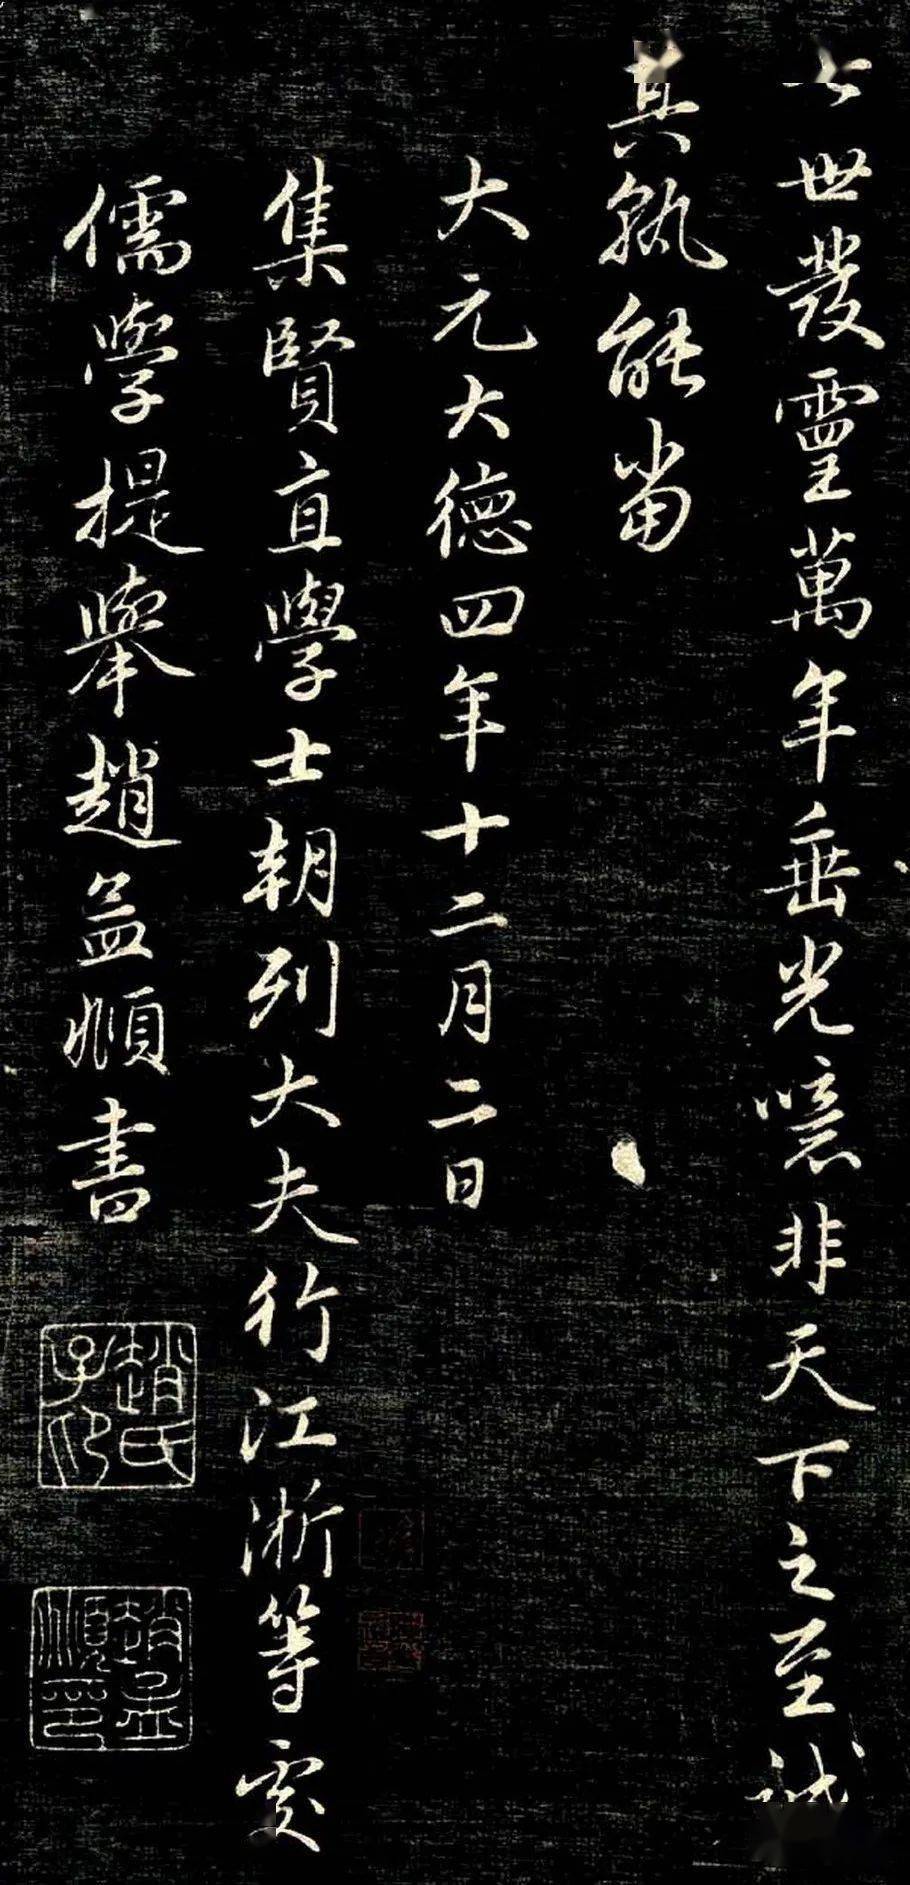 世發靈萬年垂光噫非天下之至誠
其孰能當
大元大德四年十二月二日
集賢直學士朝列大夫行江浙等處
儒學提舉趙孟頫書
趙氏子昂
趙孟頫印